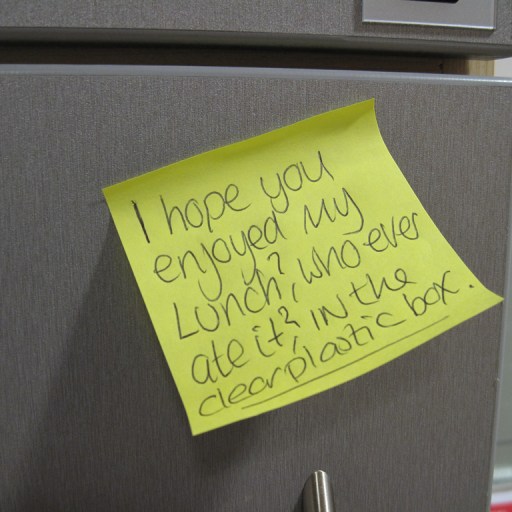 I hope you
enjoyed my
Lunch?, who ever
ate it? IN the
clear plastic box.